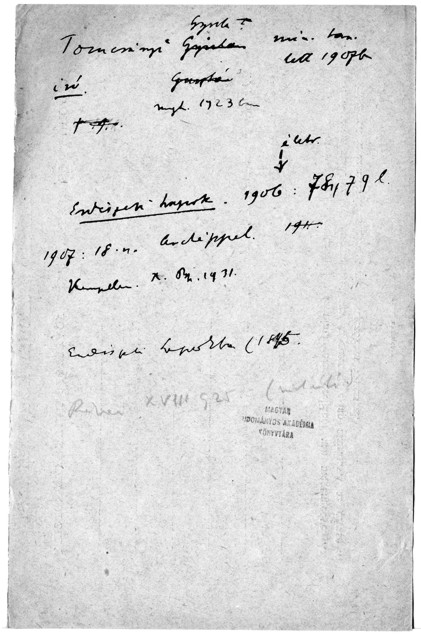 Gyula ?
Tomcsányi Gyula min. tan.
lett 1907b
író. Gusztáv
nyh. 1923
életr.
Erdészeti Lapok. 1906: 78, 79 l.
1907: 18. n. arcképpel. 191
Kempelen. X. Bp. 1931.
Erdészeti Lapokba (1895.
Révai XVIII 325
MAGYAR
TUDOMÁNYOS AKADÉMIA
KÖNYVTÁRA